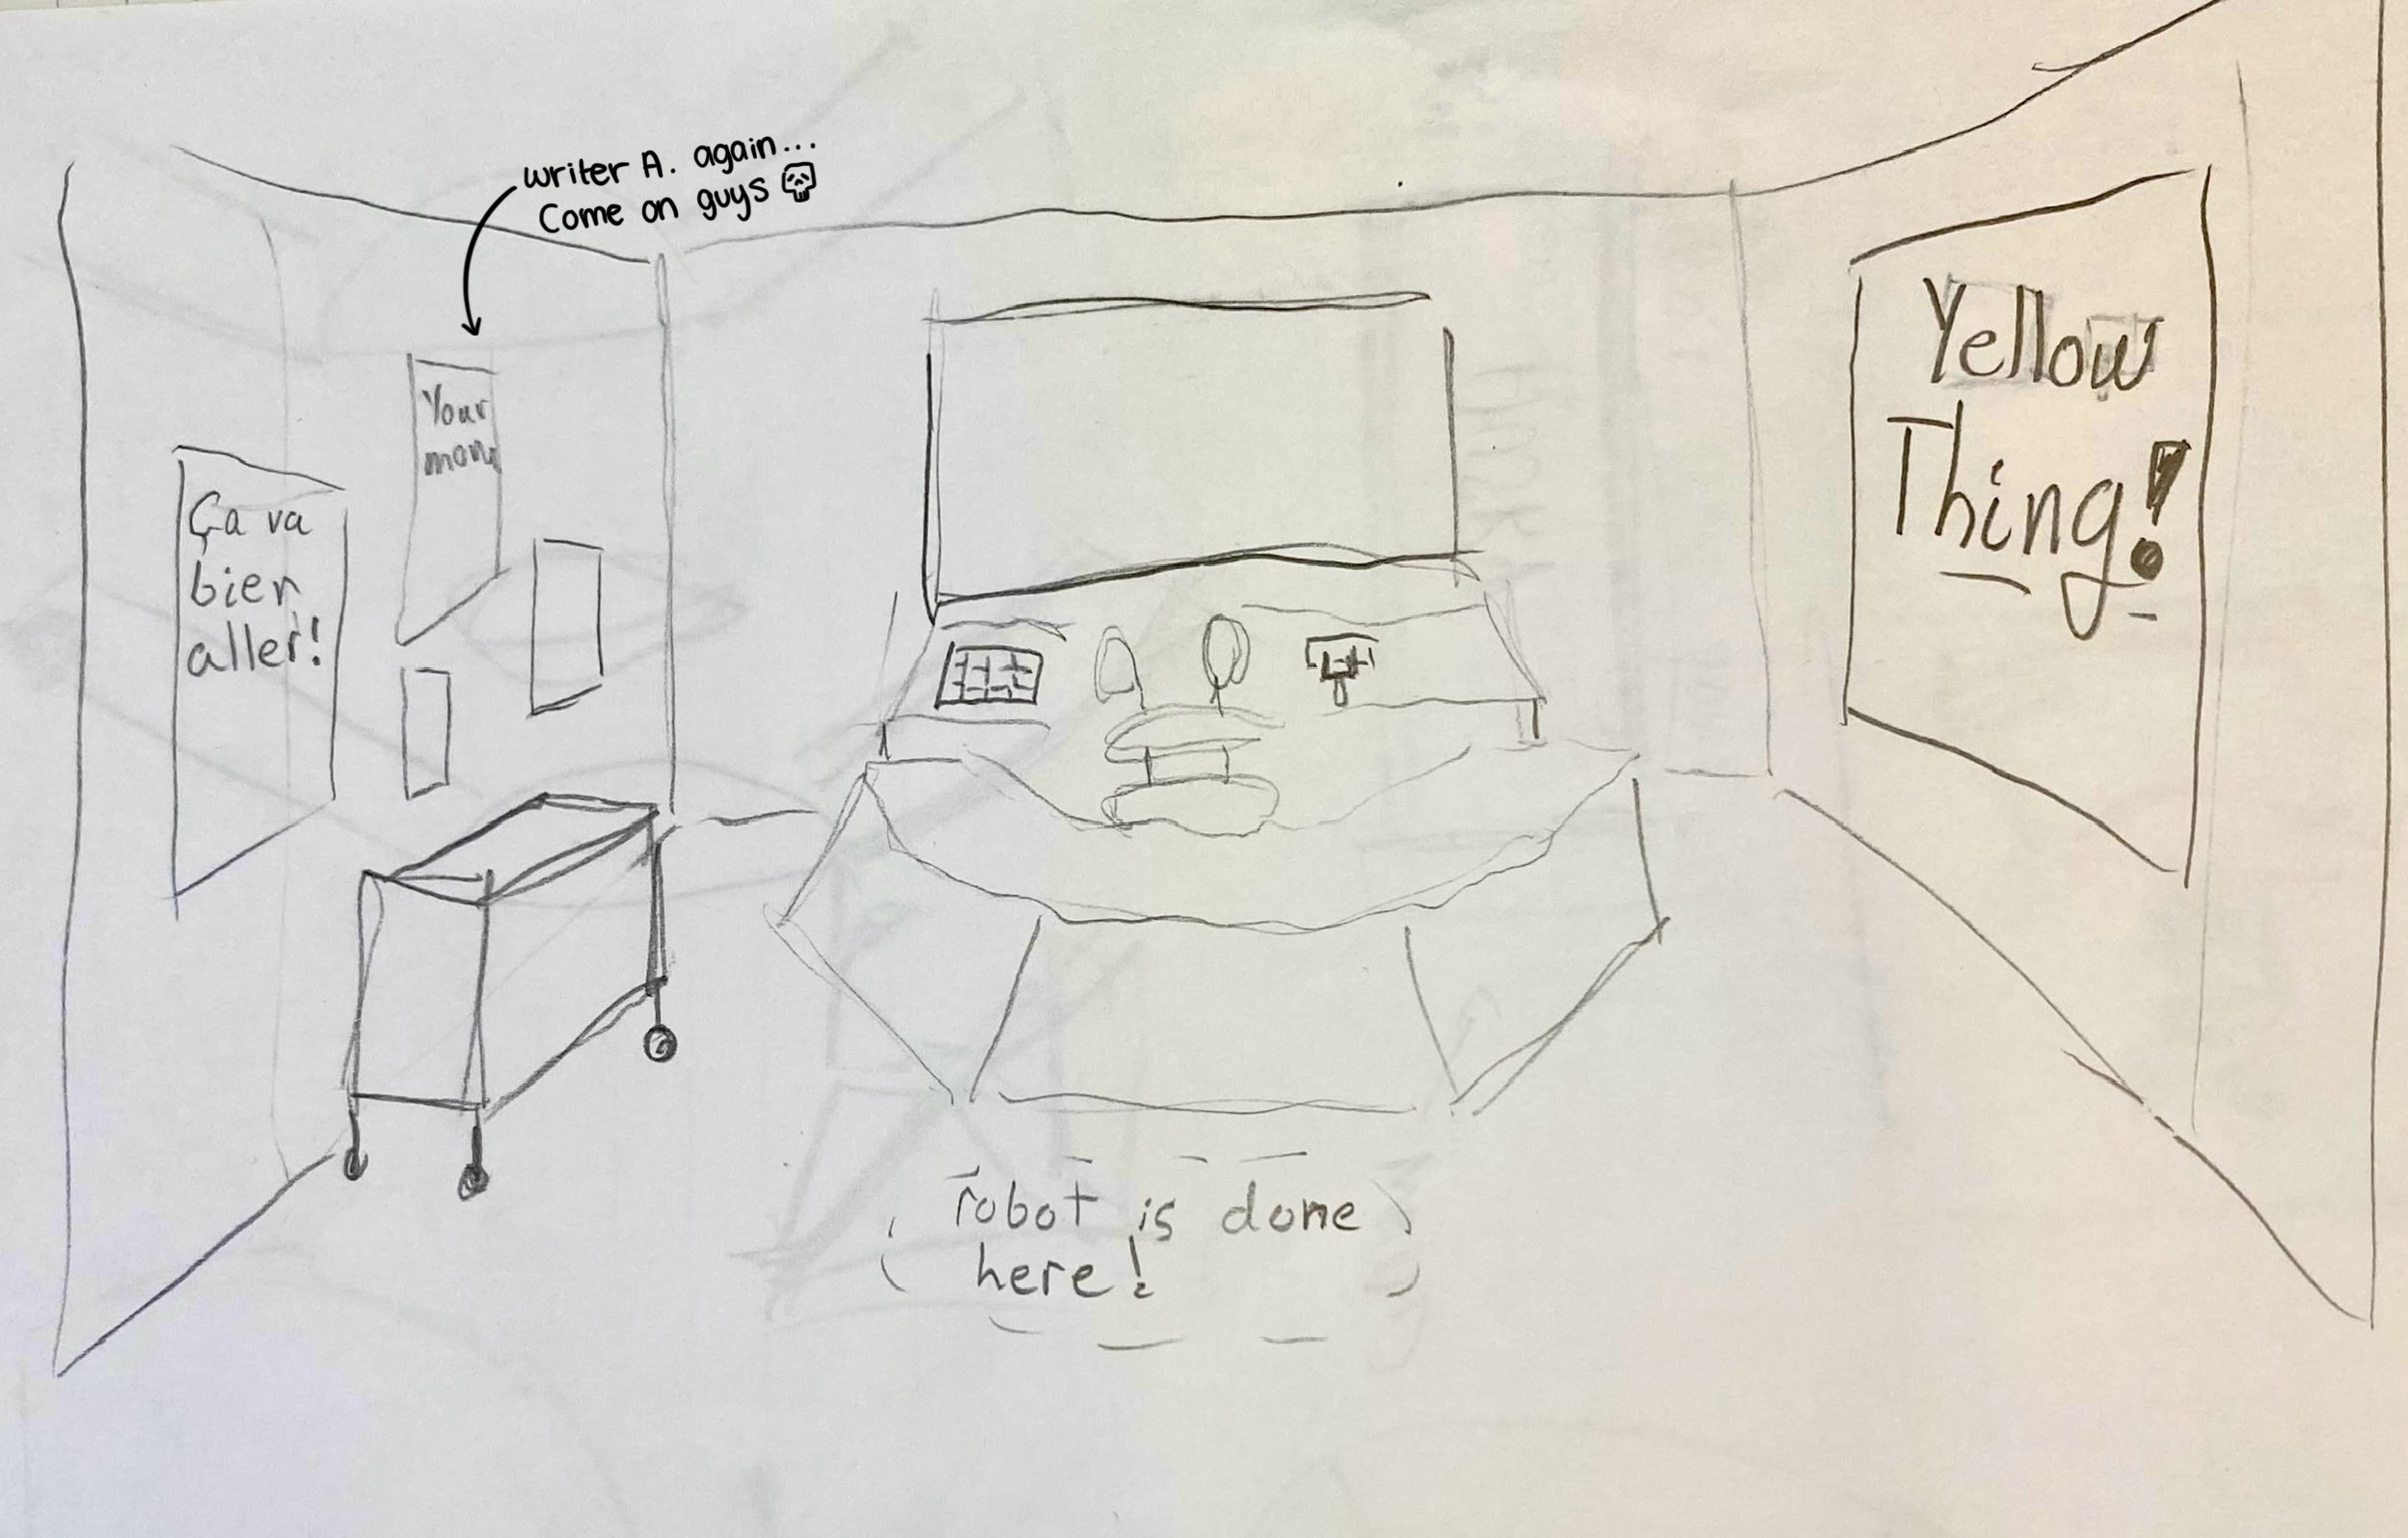 writer A. again...
Come on guys
Your
mom
Ça va
bien
aller!
Yellow
Thing!
robot is done
here!